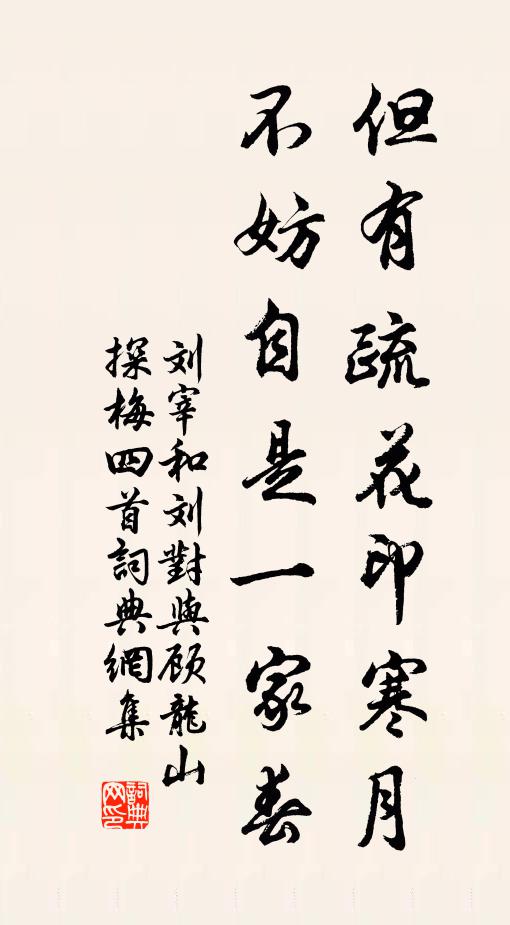 但有疏花印寒月
不妨自是一家春
刘宰和刘對與顾龍山
探梅四首詞典網集
詞典网印